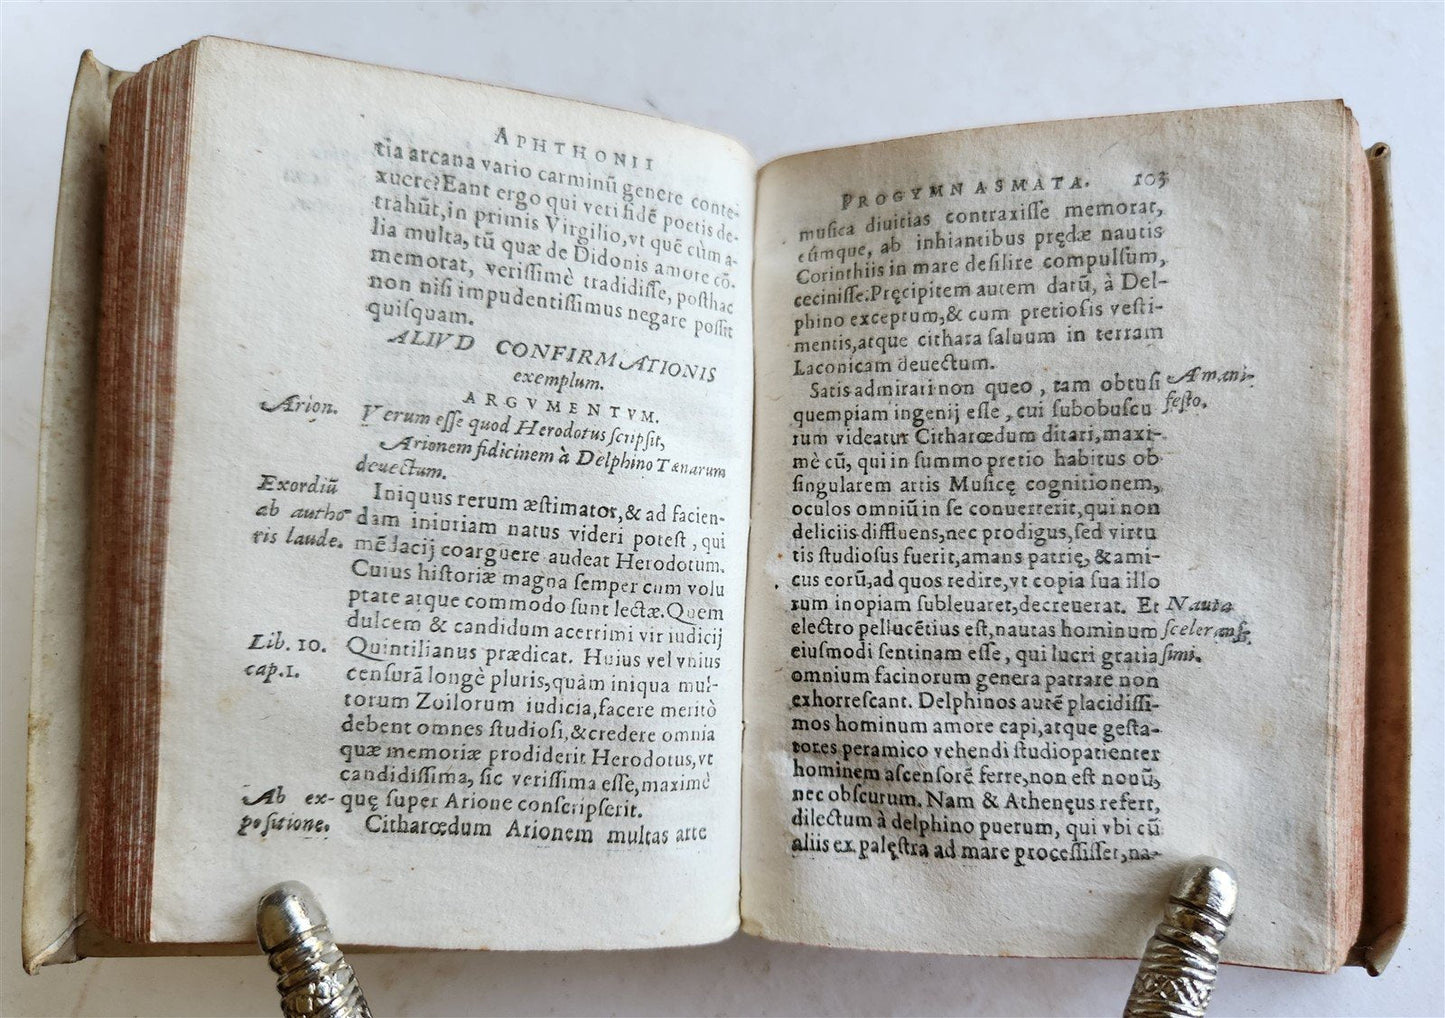 APHTHONII
tia arcana vario carminũ genere conte-
xuere? Eant ergo qui veri fidẽ poetis de-
trahũt, in primis Virgilio, vt quẽ cùm a-
lia multa, tũ quæ de Didonis amore cõ-
memorat, verissimè tradidisse, posthac
non nisi impudentissimus negare possit
quisquam.
ALIVD CONFIRMATIONIS
exemplum.
ARGVMENTVM.
Arion.
Verum esse quod Herodotus scripsit,
Arionem fidicinem à Delphino Tænarum
deuectum.
Exordiũ
ab autho-
ris laude.
Iniquus rerum æstimator, & ad facien-
dam iniuriam natus videri potest, qui
mẽdacij coarguere audeat Herodotum.
Cuius historiæ magna semper cum volu
ptate atque commodo sunt lectæ. Quem
dulcem & candidum acerrimi vir iudicij
Lib. 10.
cap. 1.
Quintilianus prædicat. Huius vel vnius
censurã longè pluris, quàm iniqua mul-
torum Zoilorum iudicia, facere meritò
debent omnes studiosi, & credere omnia
quæ memoriæ prodiderit Herodotus, vt
candidissima, sic verissima esse, maximè
quę super Arione conscripserit.
Ab ex-
positione.
Citharœdum Arionem multas arte
PROGYMNASMATA. 103
musica diuitias contraxisse memorat,
eũmque, ab inhiantibus prędæ nautis
Corinthiis in mare desilire compulsum,
cecinisse. Pręcipitem autem datũ, à Del-
phino exceptum, & cum pretiosis vesti-
mentis, atque cithara saluum in terram
Laconicam deuectum.
A mani-
festo.
Satis admirari non queo, tam obtusi
quempiam ingenij esse, cui subobscu
rum videatur Citharœdum ditari, maxi-
mè cũ, qui in summo pretio habitus ob
singularem artis Musicę cognitionem,
oculos omniũ in se conuerterit, qui non
deliciis diffluens, nec prodigus, sed virtu
tis studiosus fuerit, amans patrię, & ami-
cus eorũ, ad quos redire, vt copia sua illo
rum inopiam subleuaret, decreuerat. Et
Nauta
sceleratis-
simi.
electro pellucẽtius est, nautas hominum
eiusmodi sentinam esse, qui lucri gratia
omnium facinorum genera patrare non
exhorrescant. Delphinos autẽ placidissi-
mos hominum amore capi, atque gesta-
tores peramico vehendi studio patienter
hominem ascensorẽ ferre, non est nouũ,
nec obscurum. Nam & Athenęus refert,
dilectum à delphino puerum, qui vbi cũ
aliis ex palęstra ad mare processisset, na-